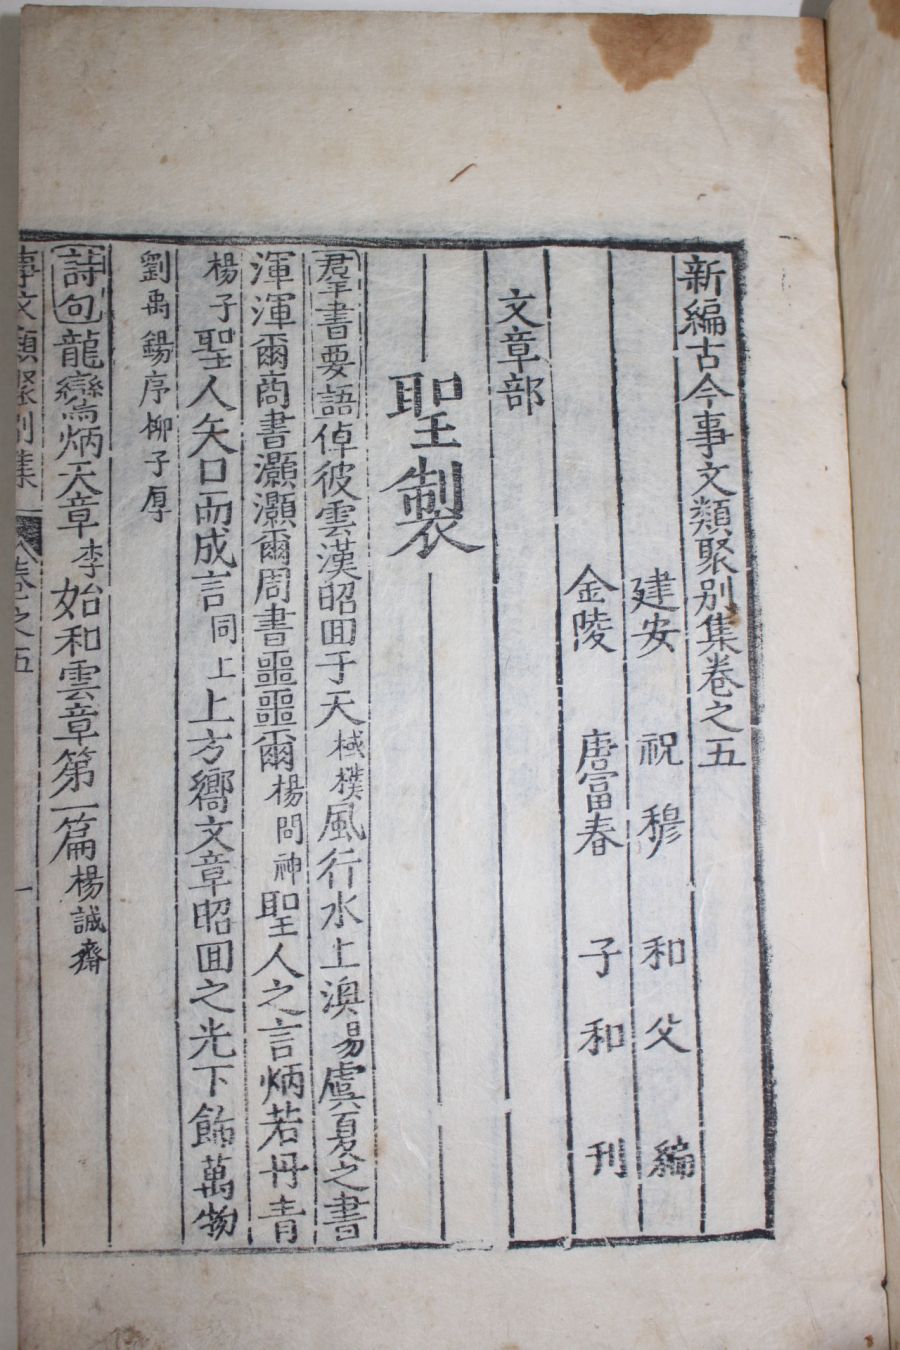 新編古今事文類聚别集卷之五
建安 祝 穆 和 父 編
金陵 唐富春 子 和 刊
文章部
聖製
羣書要語倬彼雲漢昭囬于天棫樸風行水上渙易虞夏之書
渾渾爾商書灝灝爾周書噩噩爾楊問神聖人之言炳若丹青
楊子聖人矢口而成言同上上方嚮文章昭囬之光下飾萬物
劉禹錫序柳子厚
詩句龍鸞炳天章李始和雲章第一篇楊誠齋
事文類聚别集 卷之五 一